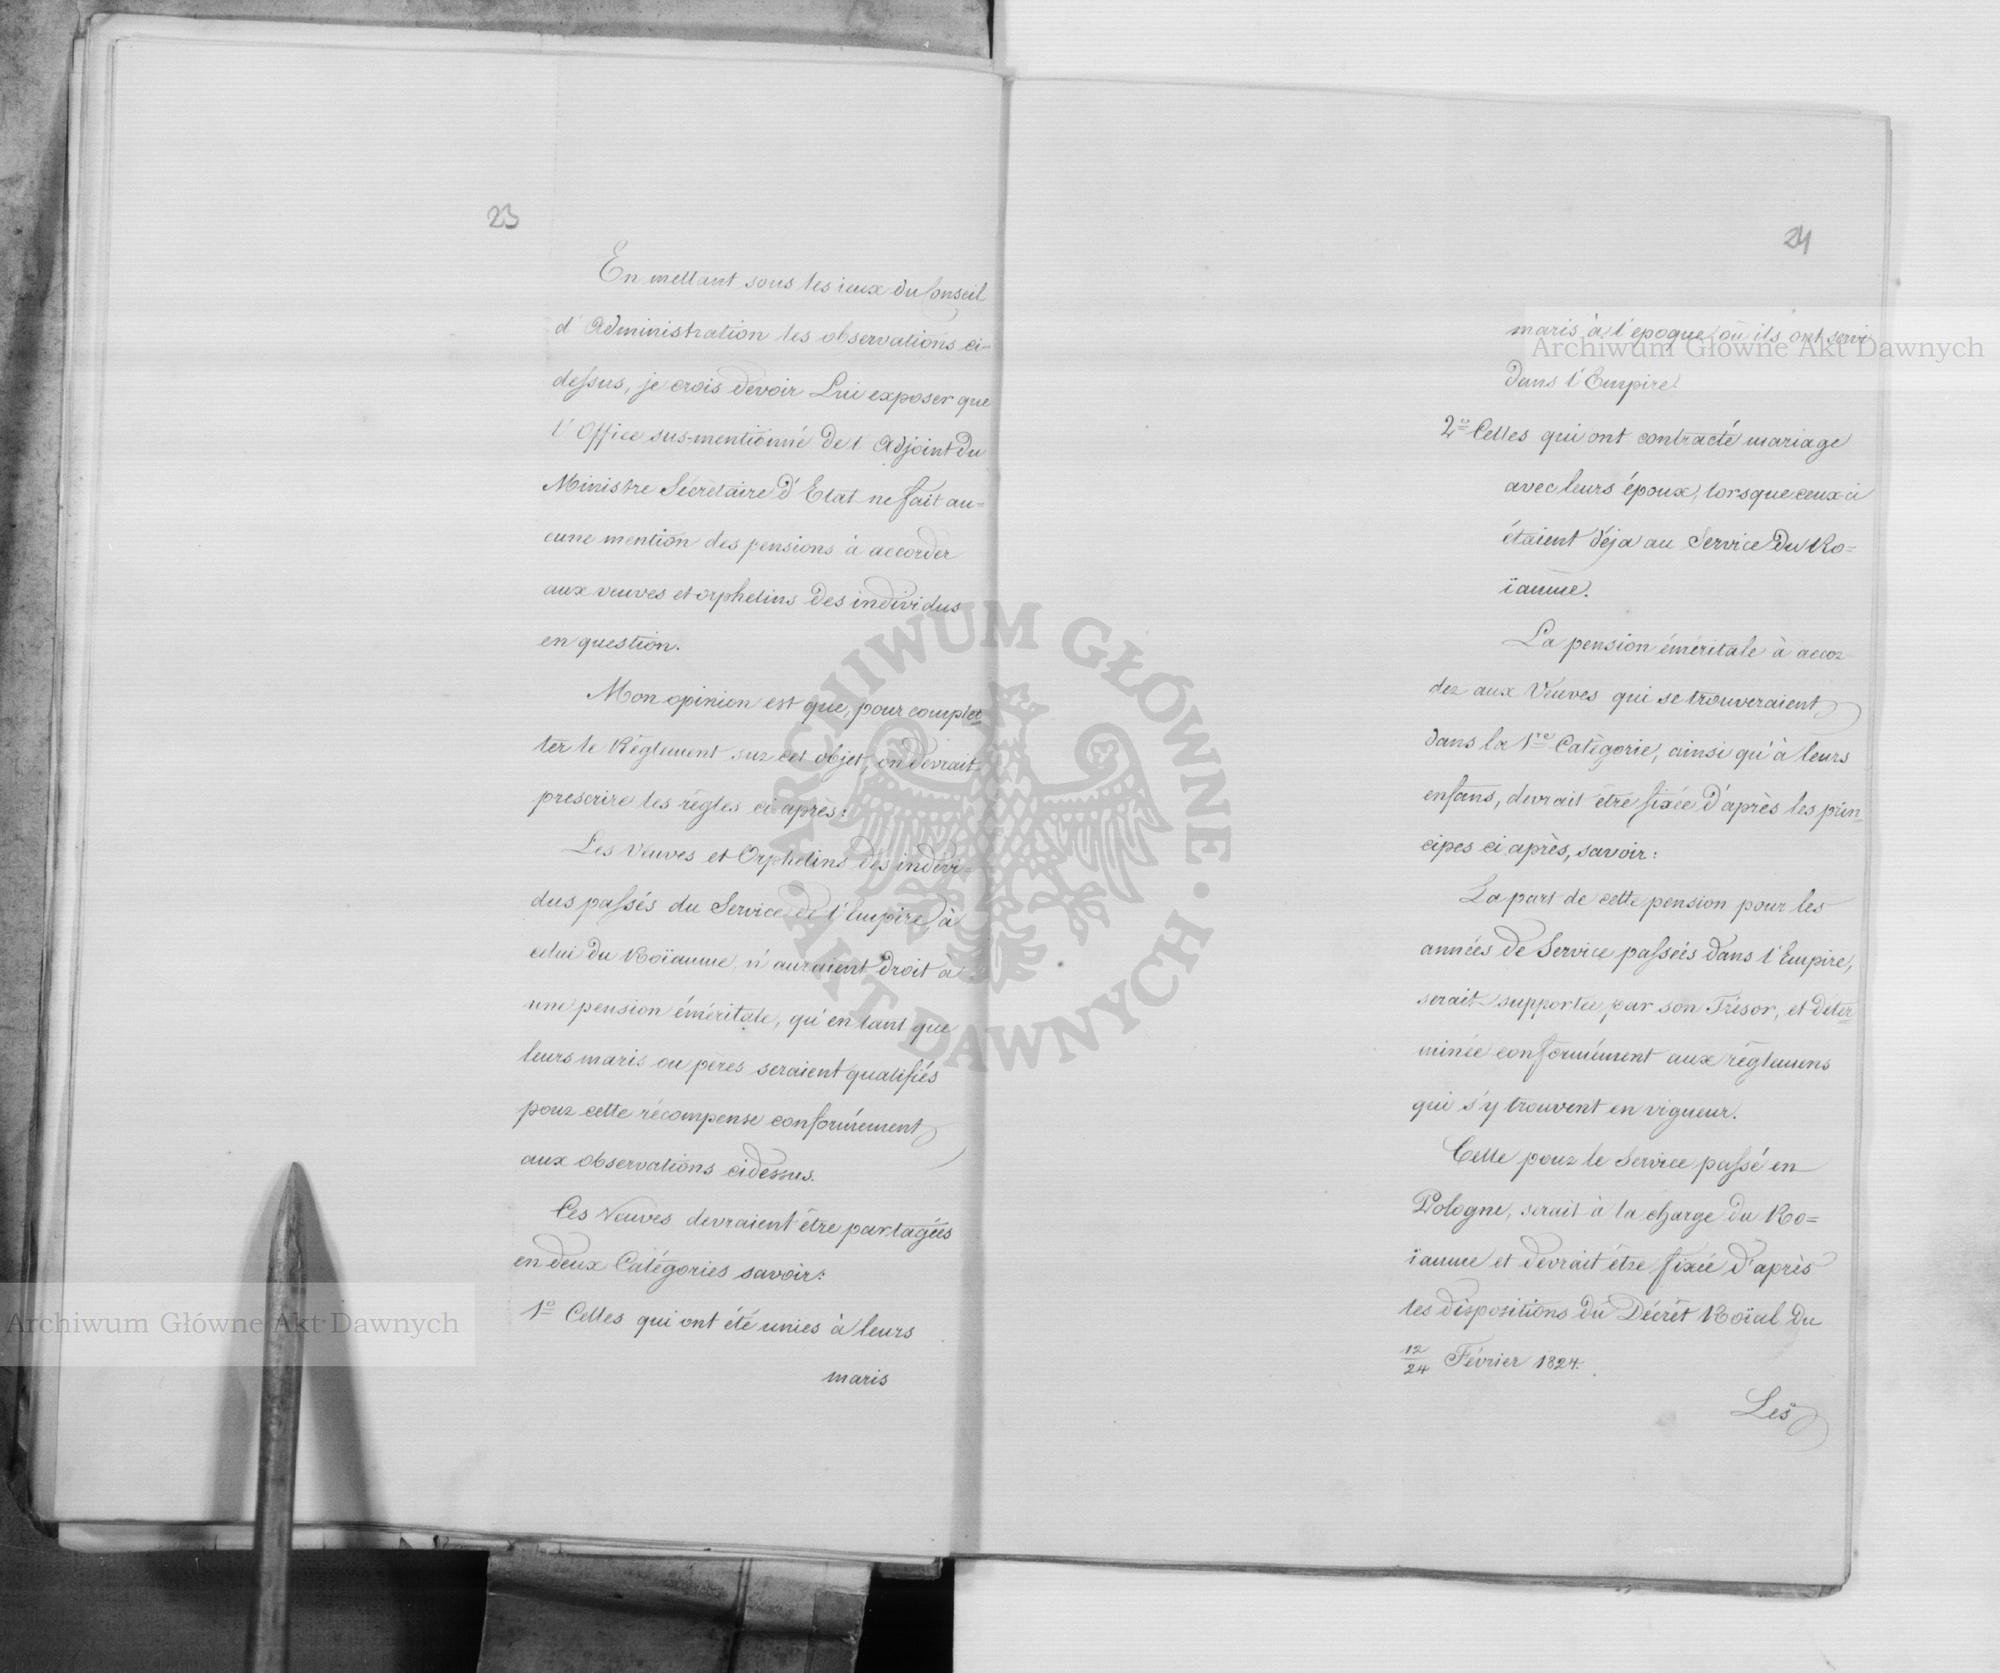 23
En mettant sous les ieux du Conseil
d'Administration les observations ci-
dessus, je crois devoir Lui exposer que
l'Office sus-mentionné de l'Adjoint du
Ministre Sécrétaire d'Etat ne fait au=
cune mention des pensions à accorder
aux veuves et orphelins des individus
en question.
Mon opinion est que, pour complet
ter le Règlement sur cet objet, on devrait
prescrire les règles ci après:
Les veuves et Orphelins des indivi=
dus passés du Service de l'Empire, à
celui du Roïaume, n'auraient droit à
une pension éméritale, qu'en tant que
leurs maris ou pères seraient qualifiés
pour cette récompense conformément
aux observations cidessus.
Ces Veuves devraient être partagées
en deux Catégories savoir:
1º Celles qui ont été unies à leurs
maris
24
maris à l'époque où ils ont servi
dans l'Empire
2º Celles qui ont contracté mariage
avec leurs époux, lorsque ceux-ci
étaient déja au Service du Ro=
ïaume.
La pension éméritale à accor
der aux Veuves qui se trouveraient
dans la 1re Catégorie, ainsi qu'à leurs
enfans, devrait être fixée d'après les prin=
cipes ci après, savoir:
La part de cette pension pour les
années de Service passées dans l'Empire,
serait supportée par son Trésor, et déter=
minée conformément aux règlemens
qui s'y trouvent en vigueur.
Celle pour le Service passé en
Pologne, serait à la charge du Ro=
ïaume et devrait être fixée d'après
les dispositions du Décrêt Roïal du
12/24 Février 1824.
Les
Archiwum Główne Akt Dawnych
Archiwum Główne Akt Dawnych
ARCHIWUM GŁÓWNE · AKT DAWNYCH ·